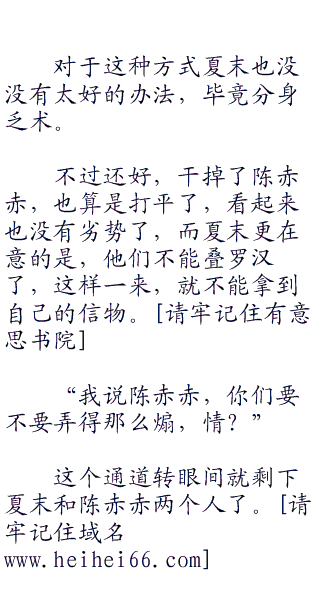 对于这种方式夏末也没
没有太好的办法，毕竟分身
乏术。
不过还好，干掉了陈赤
赤，也算是打平了，看起来
也没有劣势了，而夏末更在
意的是，他们不能叠罗汉
了，这样一来，就不能拿到
自己的信物。[请牢记住有意
思书院]
“我说陈赤赤，你们要
不要弄得那么煽，情？”
这个通道转眼间就剩下
夏末和陈赤赤两个人了。[请
牢记住域名
www.heihei66.com]